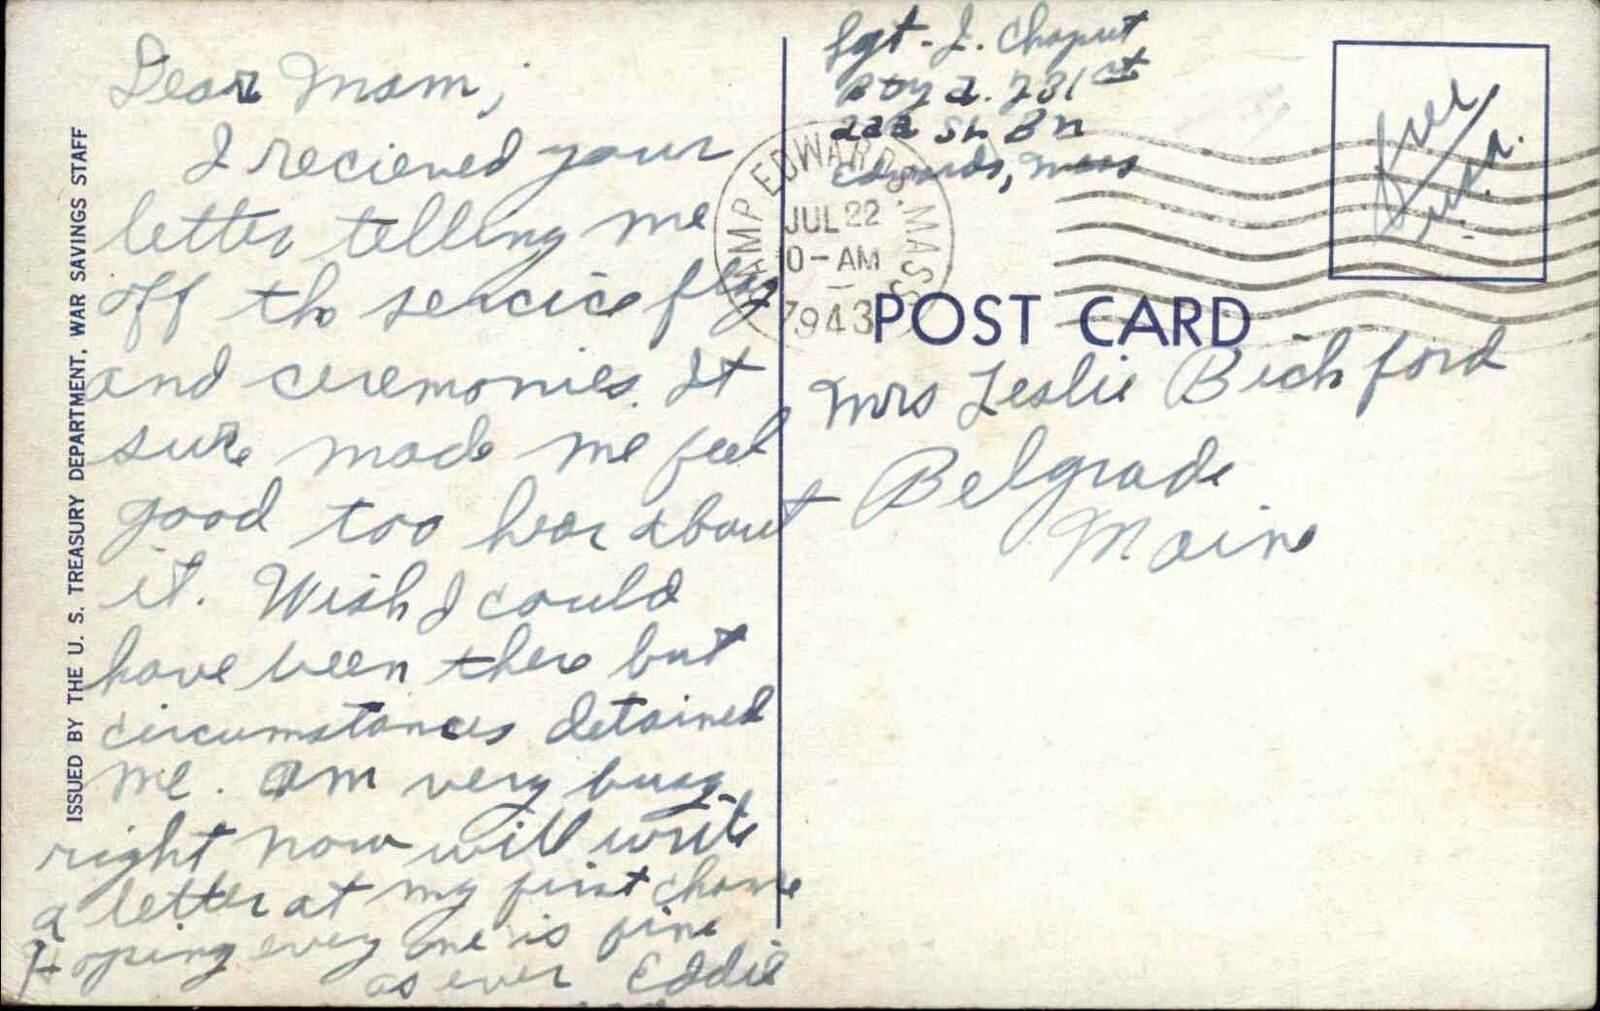 ISSUED BY THE U. S. TREASURY DEPARTMENT, WAR SAVINGS STAFF
Dear Mom,
I recieved your
letter telling me
off the service flag
and ceremonies. It
sure made me feel
good too hear about
it. Wish I could
have been there but
circumstances detained
me. Am very busy
right now will write
a letter at my first chance
Hoping every one is fine
as ever Eddie
Sgt. J. Chaput
Bty A. 731st
Sh Bn
Edwards, Mass
CAMP EDWARDS. MASS
JUL 22
0-AM
1943
Free
U.S.A.
POST CARD
Mrs Leslie Bickford
Belgrade
Maine